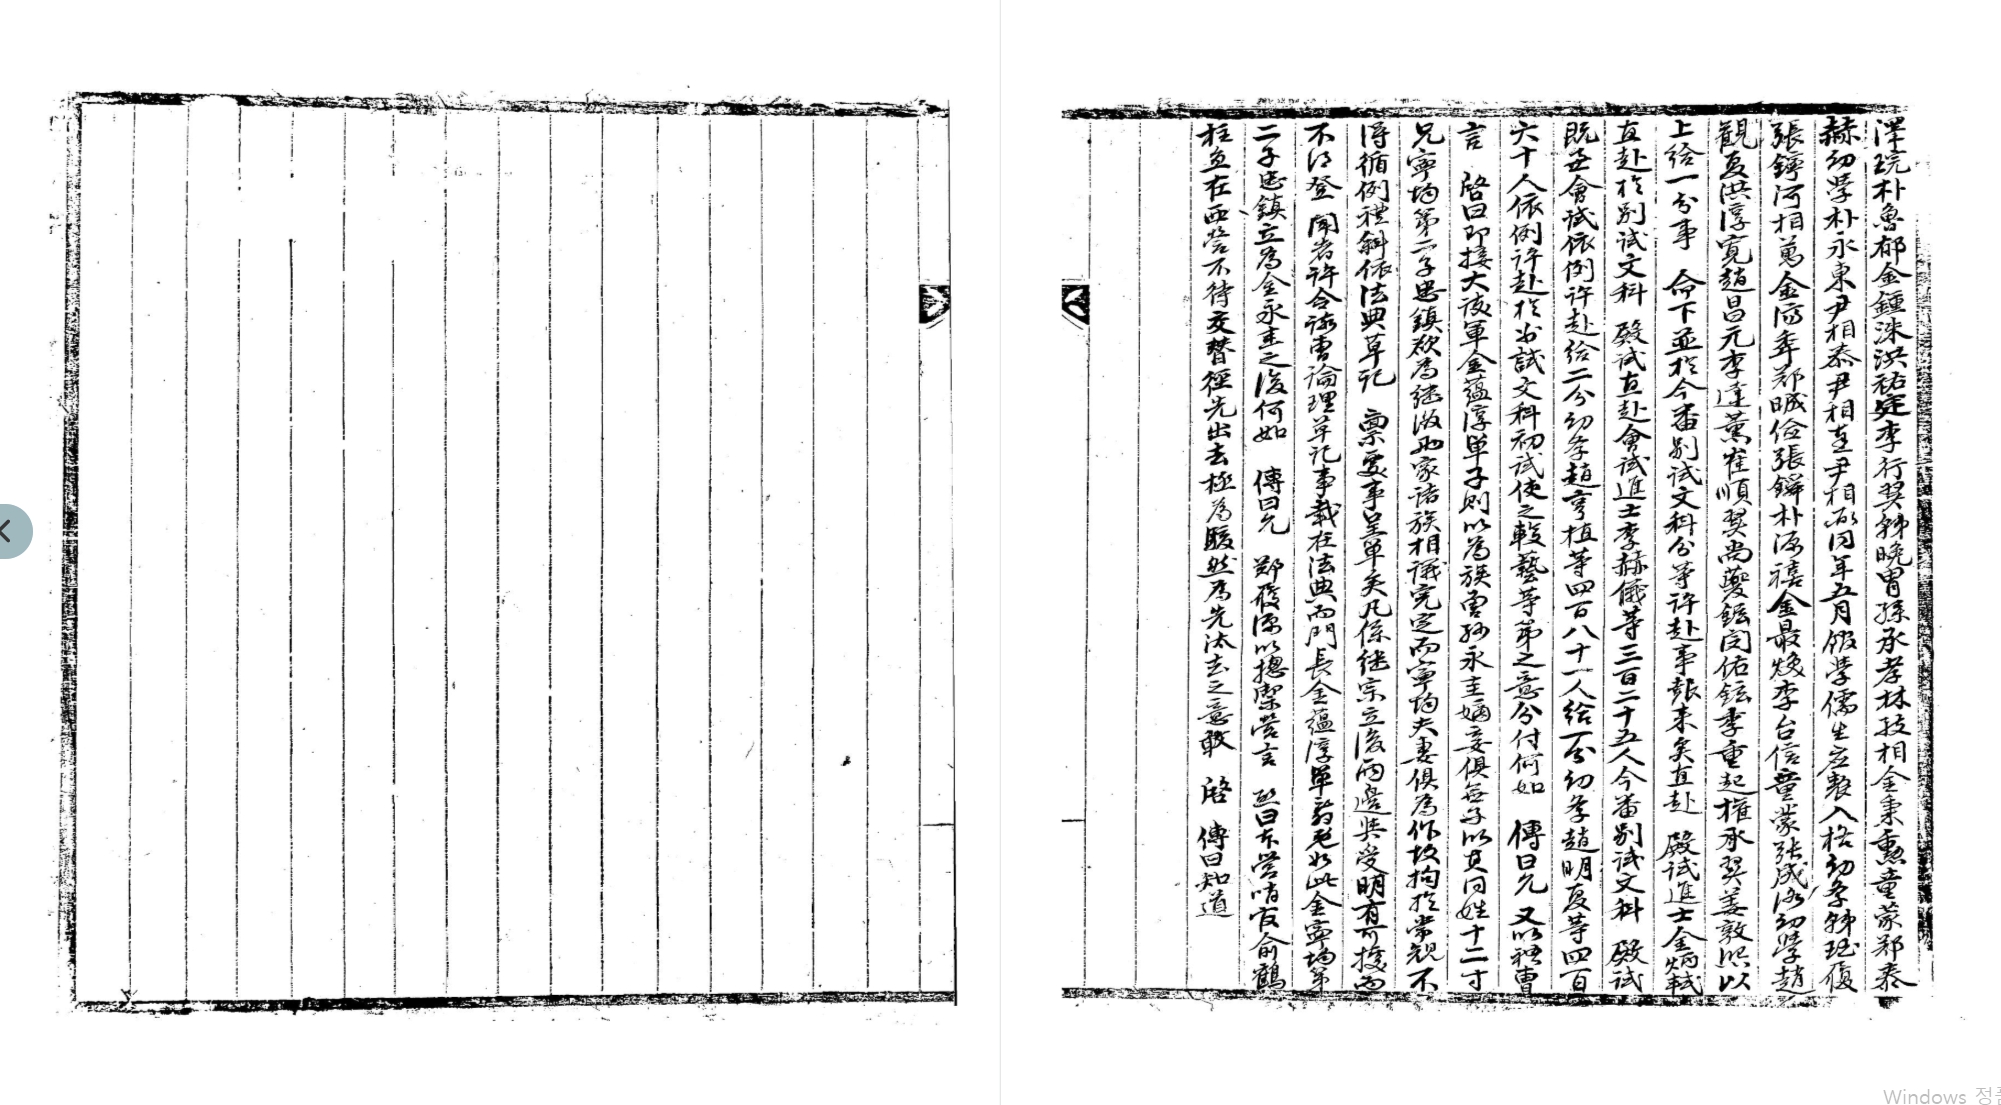 澤琓朴魯郁金鍾洙洪祐定李行翼韓晚胄孫承孝林技相金秉勳童蒙鄭泰
赫幼學朴永東尹相泰尹相直尹相 同年五月 學儒生應製入格幼學韓珽復
張鎛河相萬金 鄭晠儉張鏻朴 禧金最煥李台信童蒙張成 幼學趙
觀夏洪淳寬趙昌元李達薰崔順翼尙夔鉉閔佑鉉李重起權承翼姜敦熙以
上給一分事 命下並於今番別試文科分等許赴事報來矣直赴 殿試進士金炳軾
直赴於別試文科 殿試直赴會試進士李赫儀等三百二十五人今番別試文科 殿試
旣無會試依例許赴給二分幼學趙亨植等四百八十一人給一分幼學趙明夏等四百
六十人依例許赴於別試文科初試使之較藝等第之意分付何如 傳曰允 又以禮曹
言 啓曰卽接大護軍金蘊淳單子則以爲族曾孫永圭嫡妾俱無子以其同姓十二寸
兄寧均第二子思鎭欲爲繼後兩家諸族相議完定而寧均夫妻俱爲作故拘於常規不
得循例禮斜依法典草記 稟處事呈單矣凡係繼宗立後兩邊與受明有可據而
不得登 聞者許令該曹論理草記事載在法典而門長金蘊淳單辭旣如此金寧均第
二子思鎭立爲金永圭之後何如 傳曰允 鄭 源以摠禦營言 啓曰本營哨官兪鶴
柱魚在 營不待交替徑先出去極爲駭然爲先汰去之意敢 啓 傳曰知道
Windows 정품